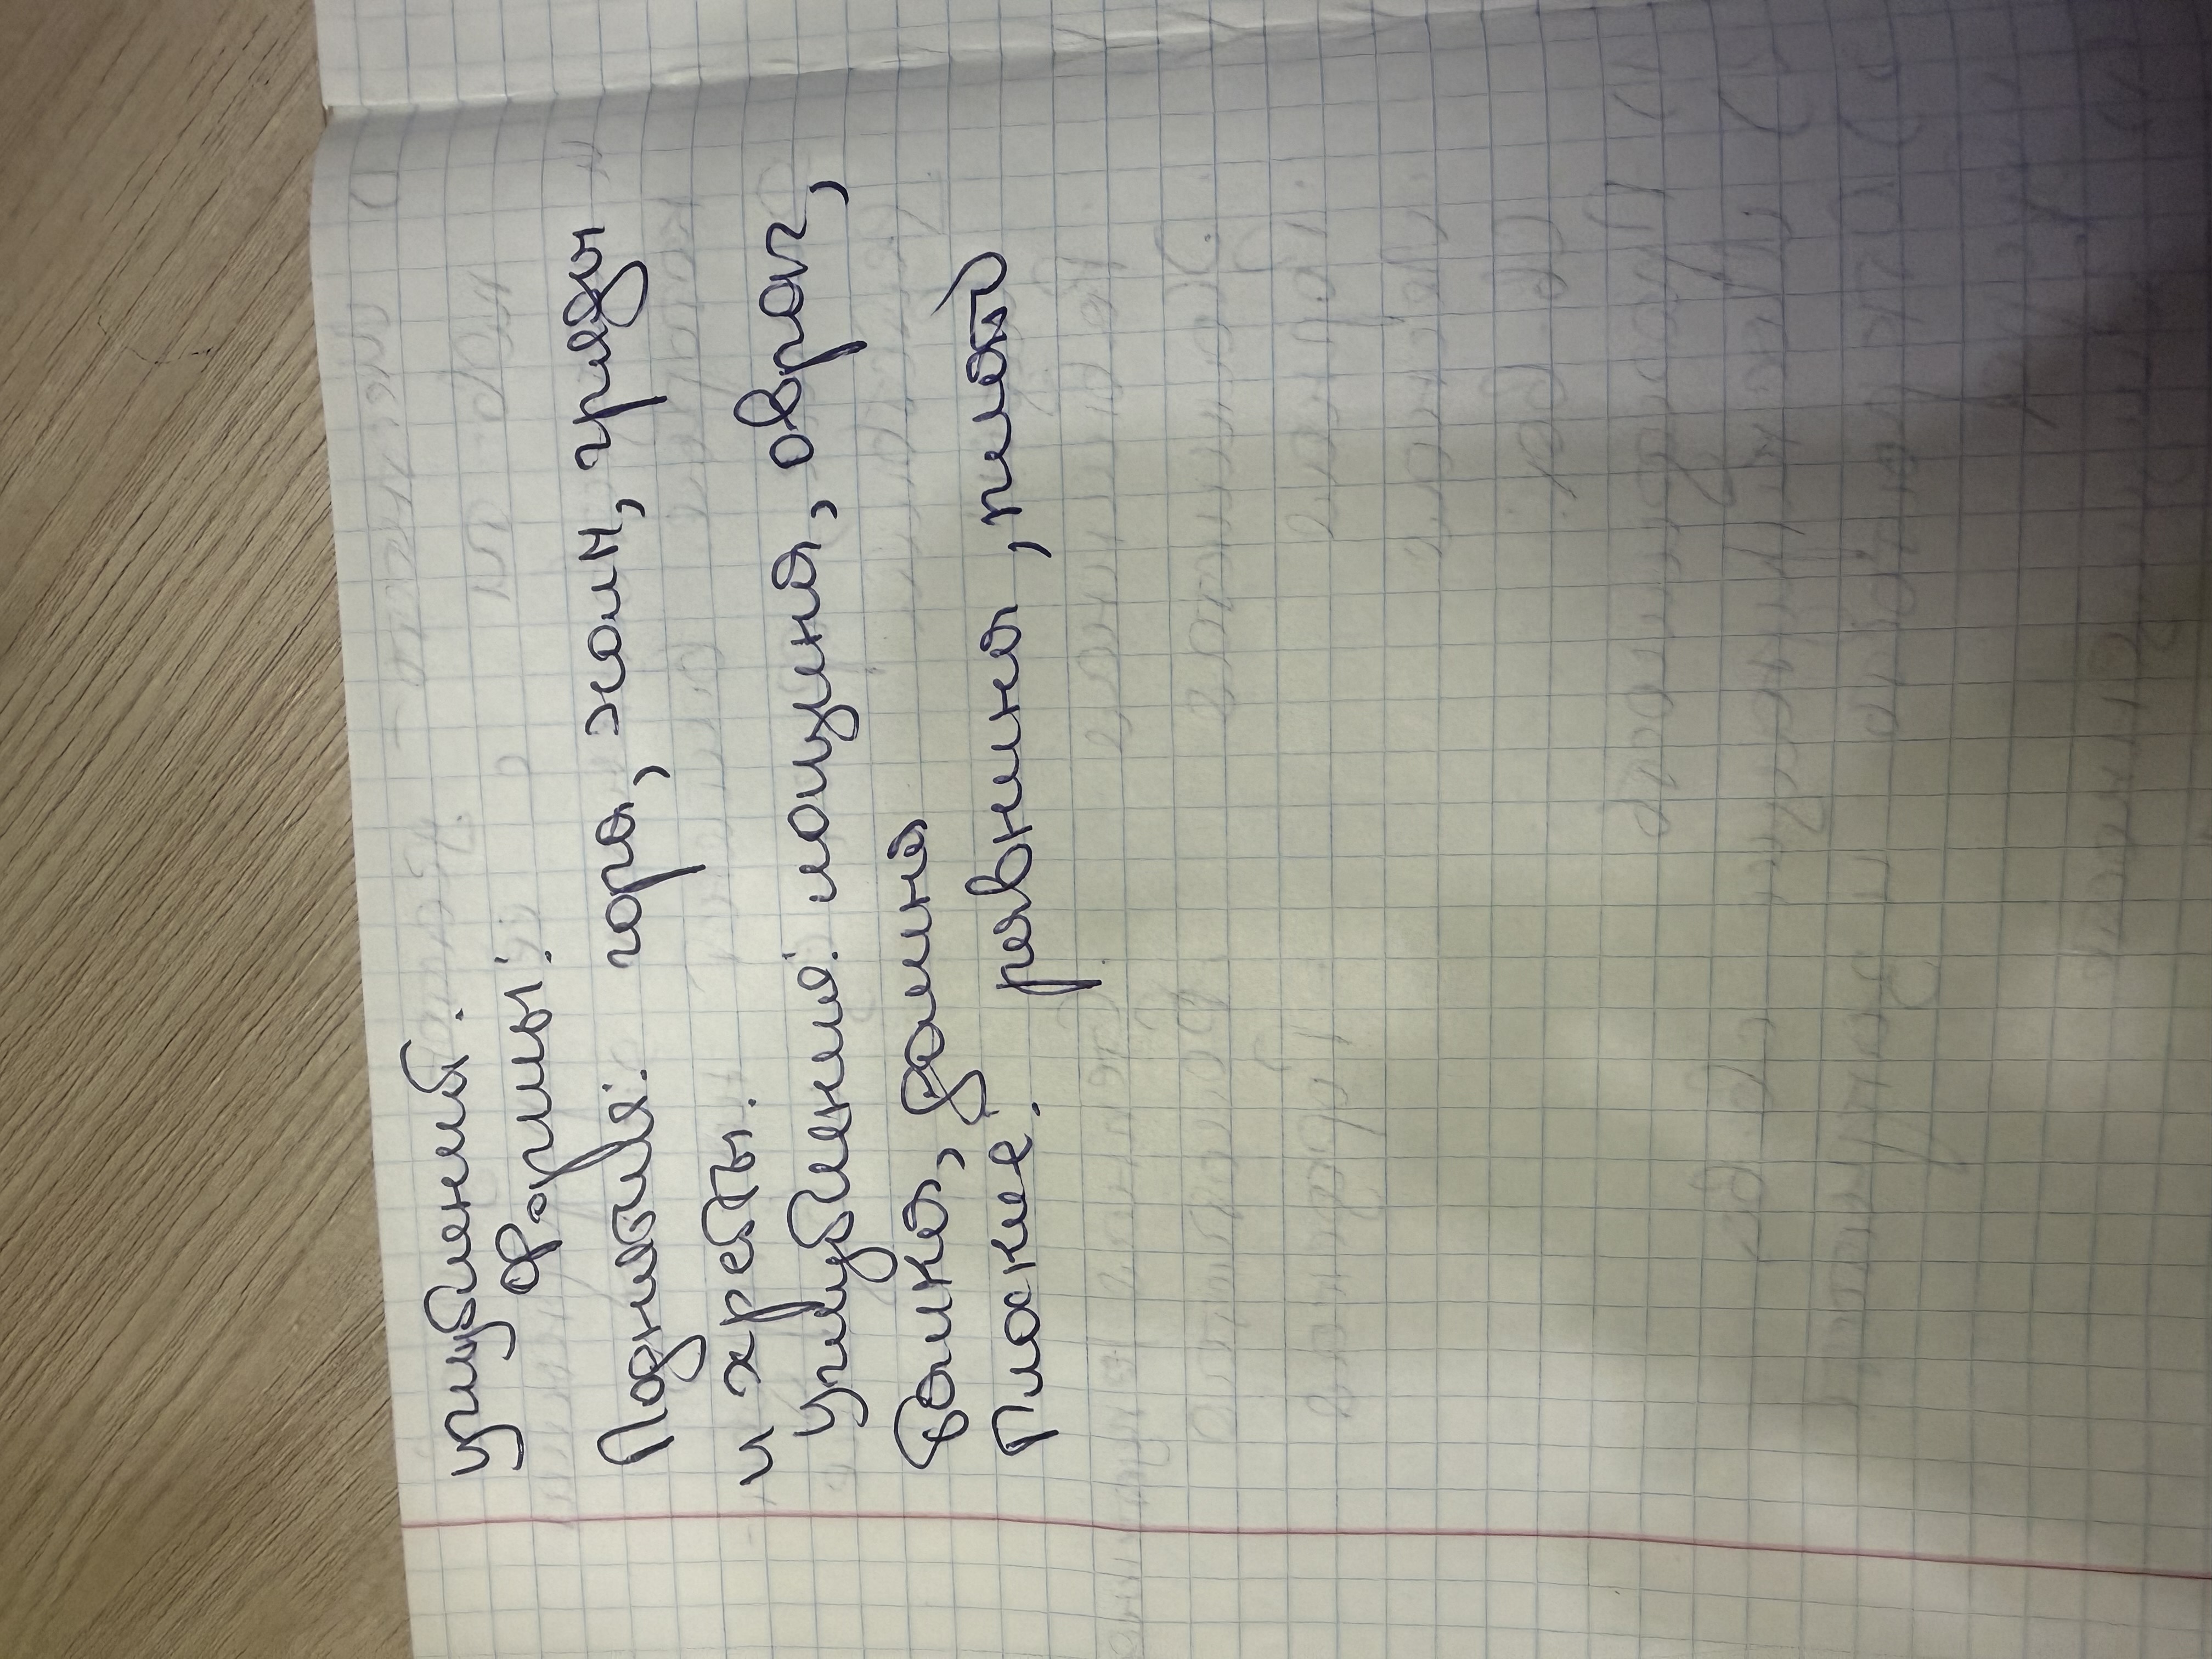 углублений.
формы:
Поднятия: гора, холм, гряды
и хребты.
углубления: лощина, овраг,
балка, долина
Плоские: равнина, плато